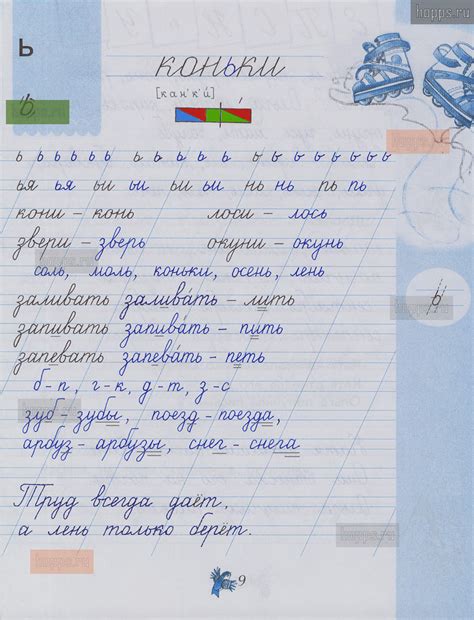 hopps.ru
ь
коньки
[кан'к'и́]
ь
hopps.ru
ь ь ь ь ь ь ь ь ь ь ь ь ь ь ь ь ь ь
ья ья ьи ьи ьи ьи нь нь пь пь
кони – конь лоси – лось
звери – зверь окуни – окунь
hopps.ru
соль, моль, коньки, осень, лень
заливать залива́ть – лить
ь
hopps.ru
запивать запива́ть – пить
hopps.ru
запевать запева́ть – петь
б-п, г-к, д-т, з-с
зуб – зубы, поезд – поезда,
арбуз – арбузы, снег – снега
Труд всегда даёт,
а лень только берёт.
hopps.ru
9